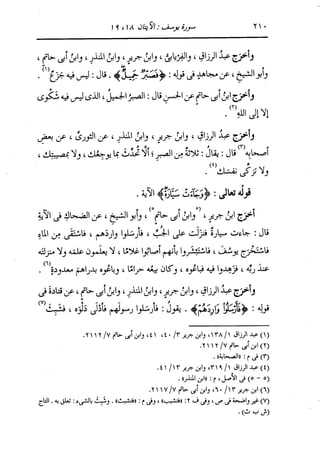 ٢١٠ سورة يوسف : الآيتان ١٨ ، ١٩
وأخرج عبدُ الرزاقِ ، والفِرْيابيُّ ، وابنُ جريرٍ ، وابنُ المنذرِ ، وابنُ أبي حاتمٍ ،
وأبو الشيخِ ، عن مجاهدٍ في قولِه : ﴿فَصَبْرٌ جَمِيلٌ﴾ . قال : ليس فيه جَزَعٌ(١) .
وأخرَج ابنُ أبي حاتمٍ عن الحسنِ قال : الصبرُ الجميلُ ، الذي ليس فيه شكوى
إلا إلى اللهِ(٢) .
وأخرَج عبدُ الرزاقِ ، وابنُ جريرٍ ، وابنُ المنذرِ ، عن الثوريِّ ، عن بعضِ
أصحابِه(٣) قال : يقالُ : ثلاثةٌ مِن الصبرِ ؛ ألَّا تُحَدِّثَ بما يوجِعُك ، ولا بمصيبتِك ،
ولا تزكِّيَ نفسَك(٤) .
قولُه تعالى : ﴿وَجَاءَتْ سَيَّارَةٌ﴾ الآية .
أخرَج ابنُ جريرٍ ، (٥وابنُ أبي حاتمٍ٥) ، وأبو الشيخِ ، عن الضحاكِ في الآيةِ
قال : جاءت سيارةٌ فنزَلت على الجُبِّ ، فأرسَلوا واردَهم ، فاستَقَى مِن الماءِ
فاستَخرَج يوسُفَ ، فاستَبشَروا بأنهم أصابوا غلامًا ، لا يعلَمون علمَه ولا منزلتَه
عندَ ربِّه ، فزهِدوا فيه فباعُوه ، وكان بيعُه حرامًا ، وباعُوه بدراهمَ معدودةٍ(٦) .
وأخرَج ابنُ جريرٍ ، وابنُ المنذرِ ، وابنُ أبي حاتمٍ ، عن قتادةَ في
قولِه : ﴿فَأَرْسَلُوا وَارِدَهُمْ﴾ . يقولُ : فأرسَلوا رسولَهم فأدلَى دلوَه ، فنشِبَ(٧)
(١) عبد الرزاق ١/ ٣١٨، وابن جرير ١٣/ ٤٠، ٤١، وابن أبي حاتم ٧/ ٢١١٢.
(٢) ابن أبي حاتم ٧/ ٢١١٢.
(٣) في م : «الصحابة» .
(٤) عبد الرزاق ١/ ٣١٩، وابن جرير ١٣/ ٤١.
(٥ - ٥) في الأصل ، م : «ابن المنذر» .
(٦) ابن جرير ١٣/ ٦٠، وابن أبي حاتم ٧/ ٢١١٧.
(٧) غير واضحة في ص ، وفي ف ٢: «فتشبث» ، وفي م : «فتشبث» . ونشِب بالشيء : تعلق به . التاج
(ن ش ب) .